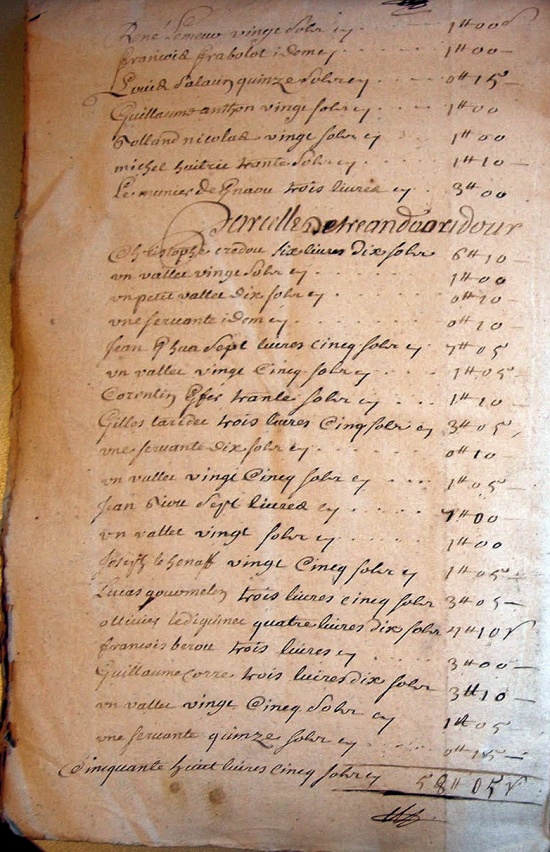 René Lemeur vingt solz cy 1ᵗᵗ00
francois frabolot idem cy 1ᵗᵗ00
Louis Salaun quinze solz cy 0ᵗᵗ15
Guillaume anthon vingt solz cy 1ᵗᵗ00
Rolland nicolas vingt solz cy 1ᵗᵗ00
michel trante solz cy 1ᵗᵗ10
Le munier de trois livres cy 3ᵗᵗ00
Parcelle De
Christophe credou six livres dix solz 6ᵗᵗ10
vn vallet vingt solz cy 1ᵗᵗ00
vn petit vallet dix solz cy 0ᵗᵗ10
vne servante idem cy 0ᵗᵗ10
Jean sept livres cincq solz cy 7ᵗᵗ05
vn vallet vingt cincq solz cy 1ᵗᵗ05
Corentin trante solz cy 1ᵗᵗ10
Gilles laridec trois livres cincq solz cy 3ᵗᵗ05
vne servante dix solz cy 0ᵗᵗ10
vn vallet vingt cincq solz cy 1ᵗᵗ05
Jean Riou sept livres cy 7ᵗᵗ00
vn vallet vingt solz cy 1ᵗᵗ00
Joseph le henaff vingt cincq solz cy 1ᵗᵗ05
Lucas gouvmelen trois livres cincq solz 3ᵗᵗ05
ollivier lediguinec quatre livres dix solz 4ᵗᵗ10
francois berou trois livres cy 3ᵗᵗ00
Guillaume corre trois livres dix solz 3ᵗᵗ10
vn vallet vingt cincq solz cy 1ᵗᵗ05
vne servante quinze solz cy 0ᵗᵗ15
Cincquante huit livres cincq solz cy 58ᵗᵗ05